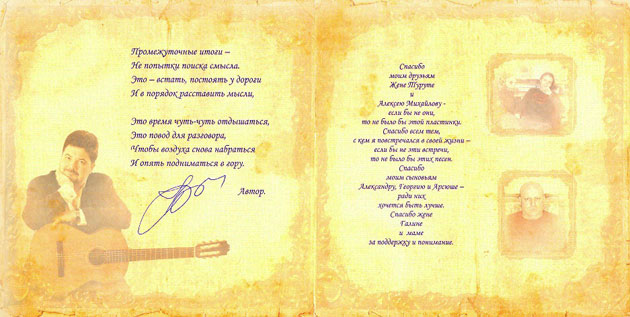 Промежуточные итоги –
Не попытки поиска смысла.
Это – встать, постоять у дороги
И в порядок расставить мысли,
Это время чуть-чуть отдышаться,
Это повод для разговора,
Чтобы воздуха снова набраться
И опять подниматься в гору.
Автор.
Спасибо
моим друзьям
Жене Туруте
и
Алексею Михайлову -
если бы не они,
то не было бы этой пластинки.
Спасибо всем тем,
с кем я повстречался в своей жизни –
если бы не эти встречи,
то не было бы этих песен.
Спасибо
моим сыновьям
Александру, Георгию и Арсюше –
ради них
хочется быть лучше.
Спасибо жене
Галине
и маме
за поддержку и понимание.